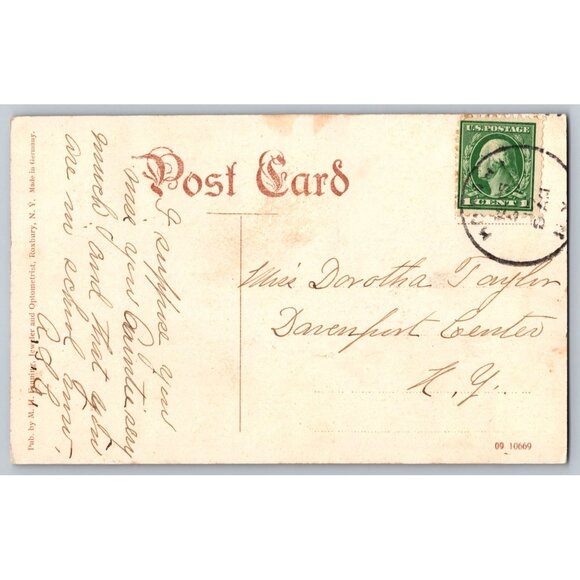 Post Card
U.S. POSTAGE
1 CENT 1
Miss Dorotha Taylor
Davenport Center
N. Y.
I suppose you
miss you Aunties very
much and that you
are in school now.
09 10669
Pub. by M. H. Fanning, Jeweler and Optometrist, Roxbury, N. Y. Made in Germany.